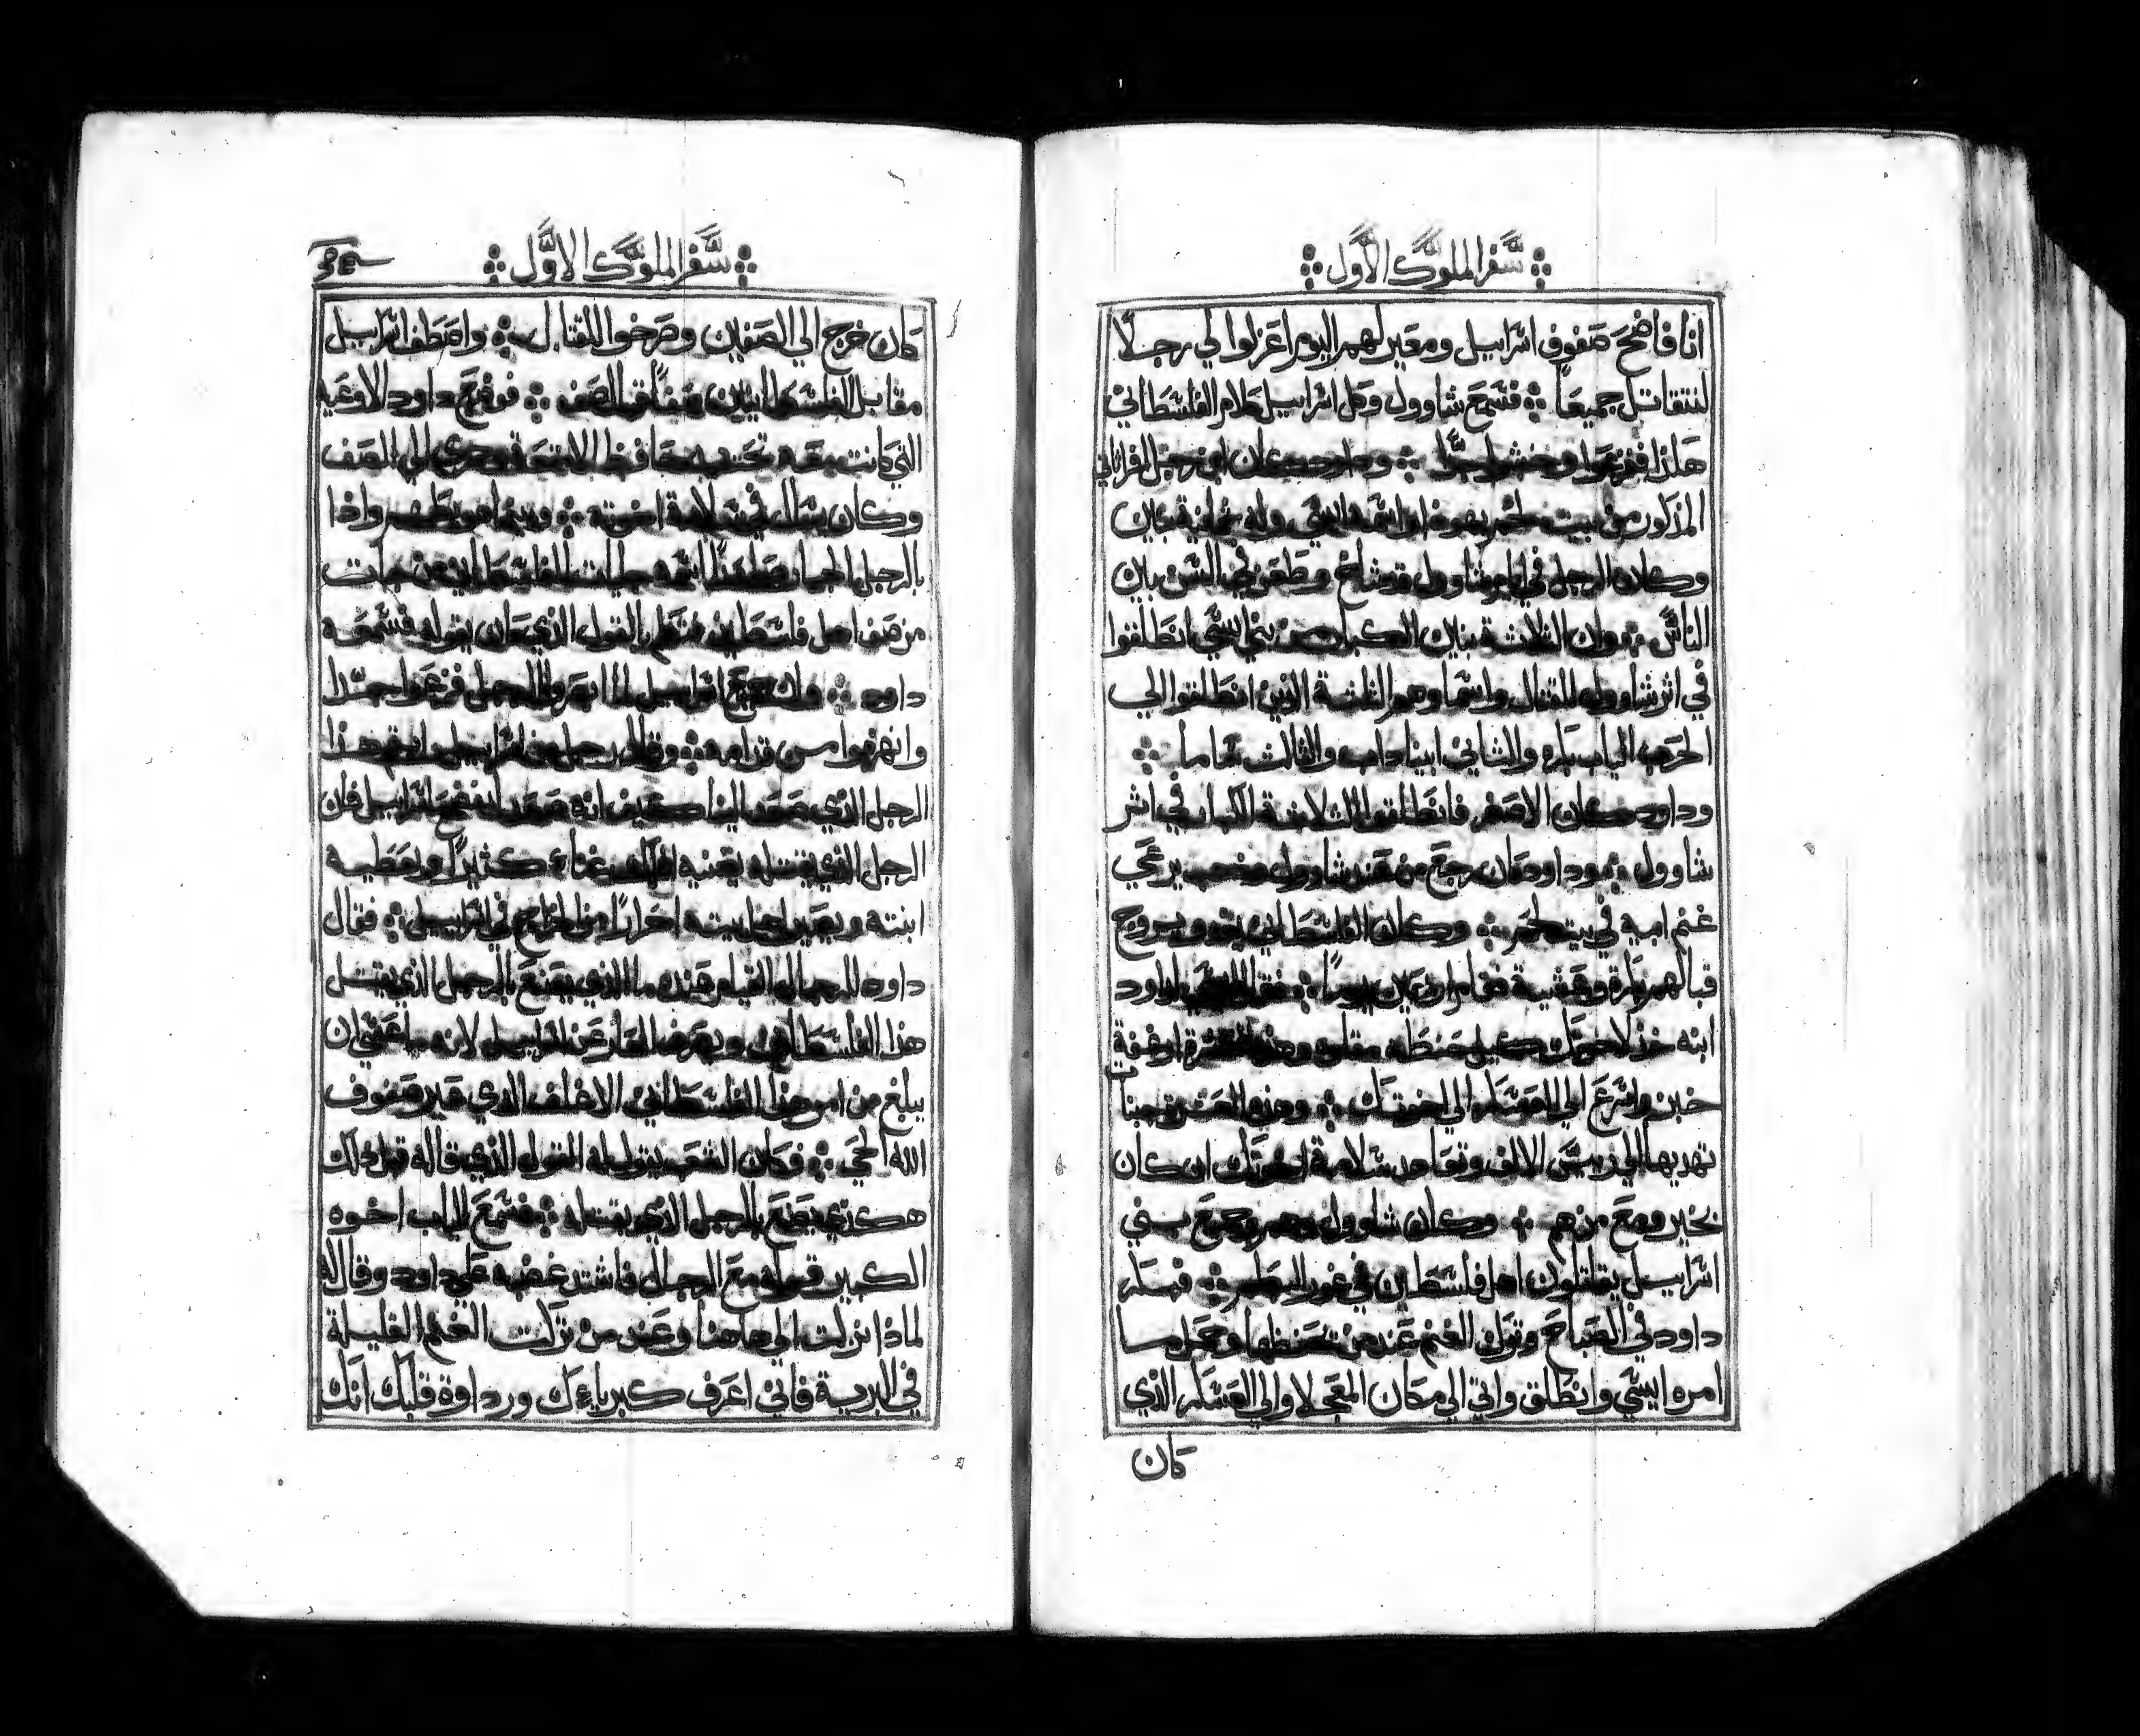 سفر الملوك الاول
انا فاضح صفوف اسراييل ومعير لهم اليوم اعزلوا لي رجلا
لنتقاتل جميعا فسمع شاوول وكل اسراييل كلام الفلسطاني
هكذا ففزعوا وخشوا جدا وداود كان ابن رجل افراتاني
المذكور من بيت لحم يهوذا اسمه ايسي وله ثمانية بنين
وكان الرجل في ايام شاوول قد شاخ وطعن في السن بين
الناس وان الثلاثة بنين الكبار من بني ايسي انطلقوا
في اثر شاوول للقتال واسما وهم الثلثة الذين انطلقوا الي
الحرب الياب بكره والثاني ابيناداب والثالث شاما
وداود كان الاصغر فانطلقوا الثلاثة الكبار في اثر
شاوول وداود كان رجع من عند شاوول يرعي
غنم ابيه في بيت لحم وكان الفلسطاني يغدو ويروح
قبالهم بكرة وعشية فقام اربعين يوما فقال ايسي لداود
ابنه خذ لاخوتك كيل حنطه مقلوه وهذه العشرة ارغفة
خبز واسرع الي العسكر الي اخوتك وهذه العشرة جبنا
تهديها الي رييس الالف وتعاهد سلامة اخوتك ان كان
بخير ومع من هم وكان شاوول وهم وجميع بني
اسراييل يقاتلون اهل فلسطين في غور البطم فبكر
داود في الصباح وترك الغنم عند من يحفظها وحمل ما
امره ايسي وانطلق واتي الي مكان المعجلا والي العسكر الذي
كان
سفر الملوك الاول
كان خرج الي الصفين وصرخوا للقتال واصطف اسراييل
مقابل الفلسطانيين صفا قبال صف فوضع داود الاوعيه
التي كانت معه تحت يد حافظ الامتعة وجري الي الصف
وكان يسال في سلامة اخوته وبينما هو يكلمهم واذا
بالرجل الجبار اسمه جليات الفلسطاني من جات
من صف اهل فلسطين فتكلم بالقول الذي كان يقوله فسمعه
داود وان جميع اسراييل لما ابصروا الرجل فزعوا جدا
وانهزموا من قدامه وقال رجل من اسراييل لهذا
الرجل الذي صعد الينا كيف انه صعد ليفضح اسراييل فان
الرجل الذي يقتله يغنيه الملك غناء كثيرا ويعطيه
ابنته ويصير اهل بيته احرارا من الخراج في اسراييل فقال
داود للرجال القيام عنده ما الذي يصنع بالرجل الذي يقتل
هذا الفلسطاني ويصرف العار عن اسراييل لانه ما عسي ان
يبلغ من امر هذا الفلسطاني الاغلف الذي عير صفوف
الله الحي فكان الشعب يقول له القول الذي قاله قبل ذلك
هكذي يصنع بالرجل الذي يقتله فسمع الياب اخوه
الكبير قوله مع الرجال فاشتد غضبه علي داود وقال له
لماذا نزلت الي هاهنا وعند من تركت الغنم القليلة
في البرية فاني اعرف كبرياءك ورداوة قلبك انك